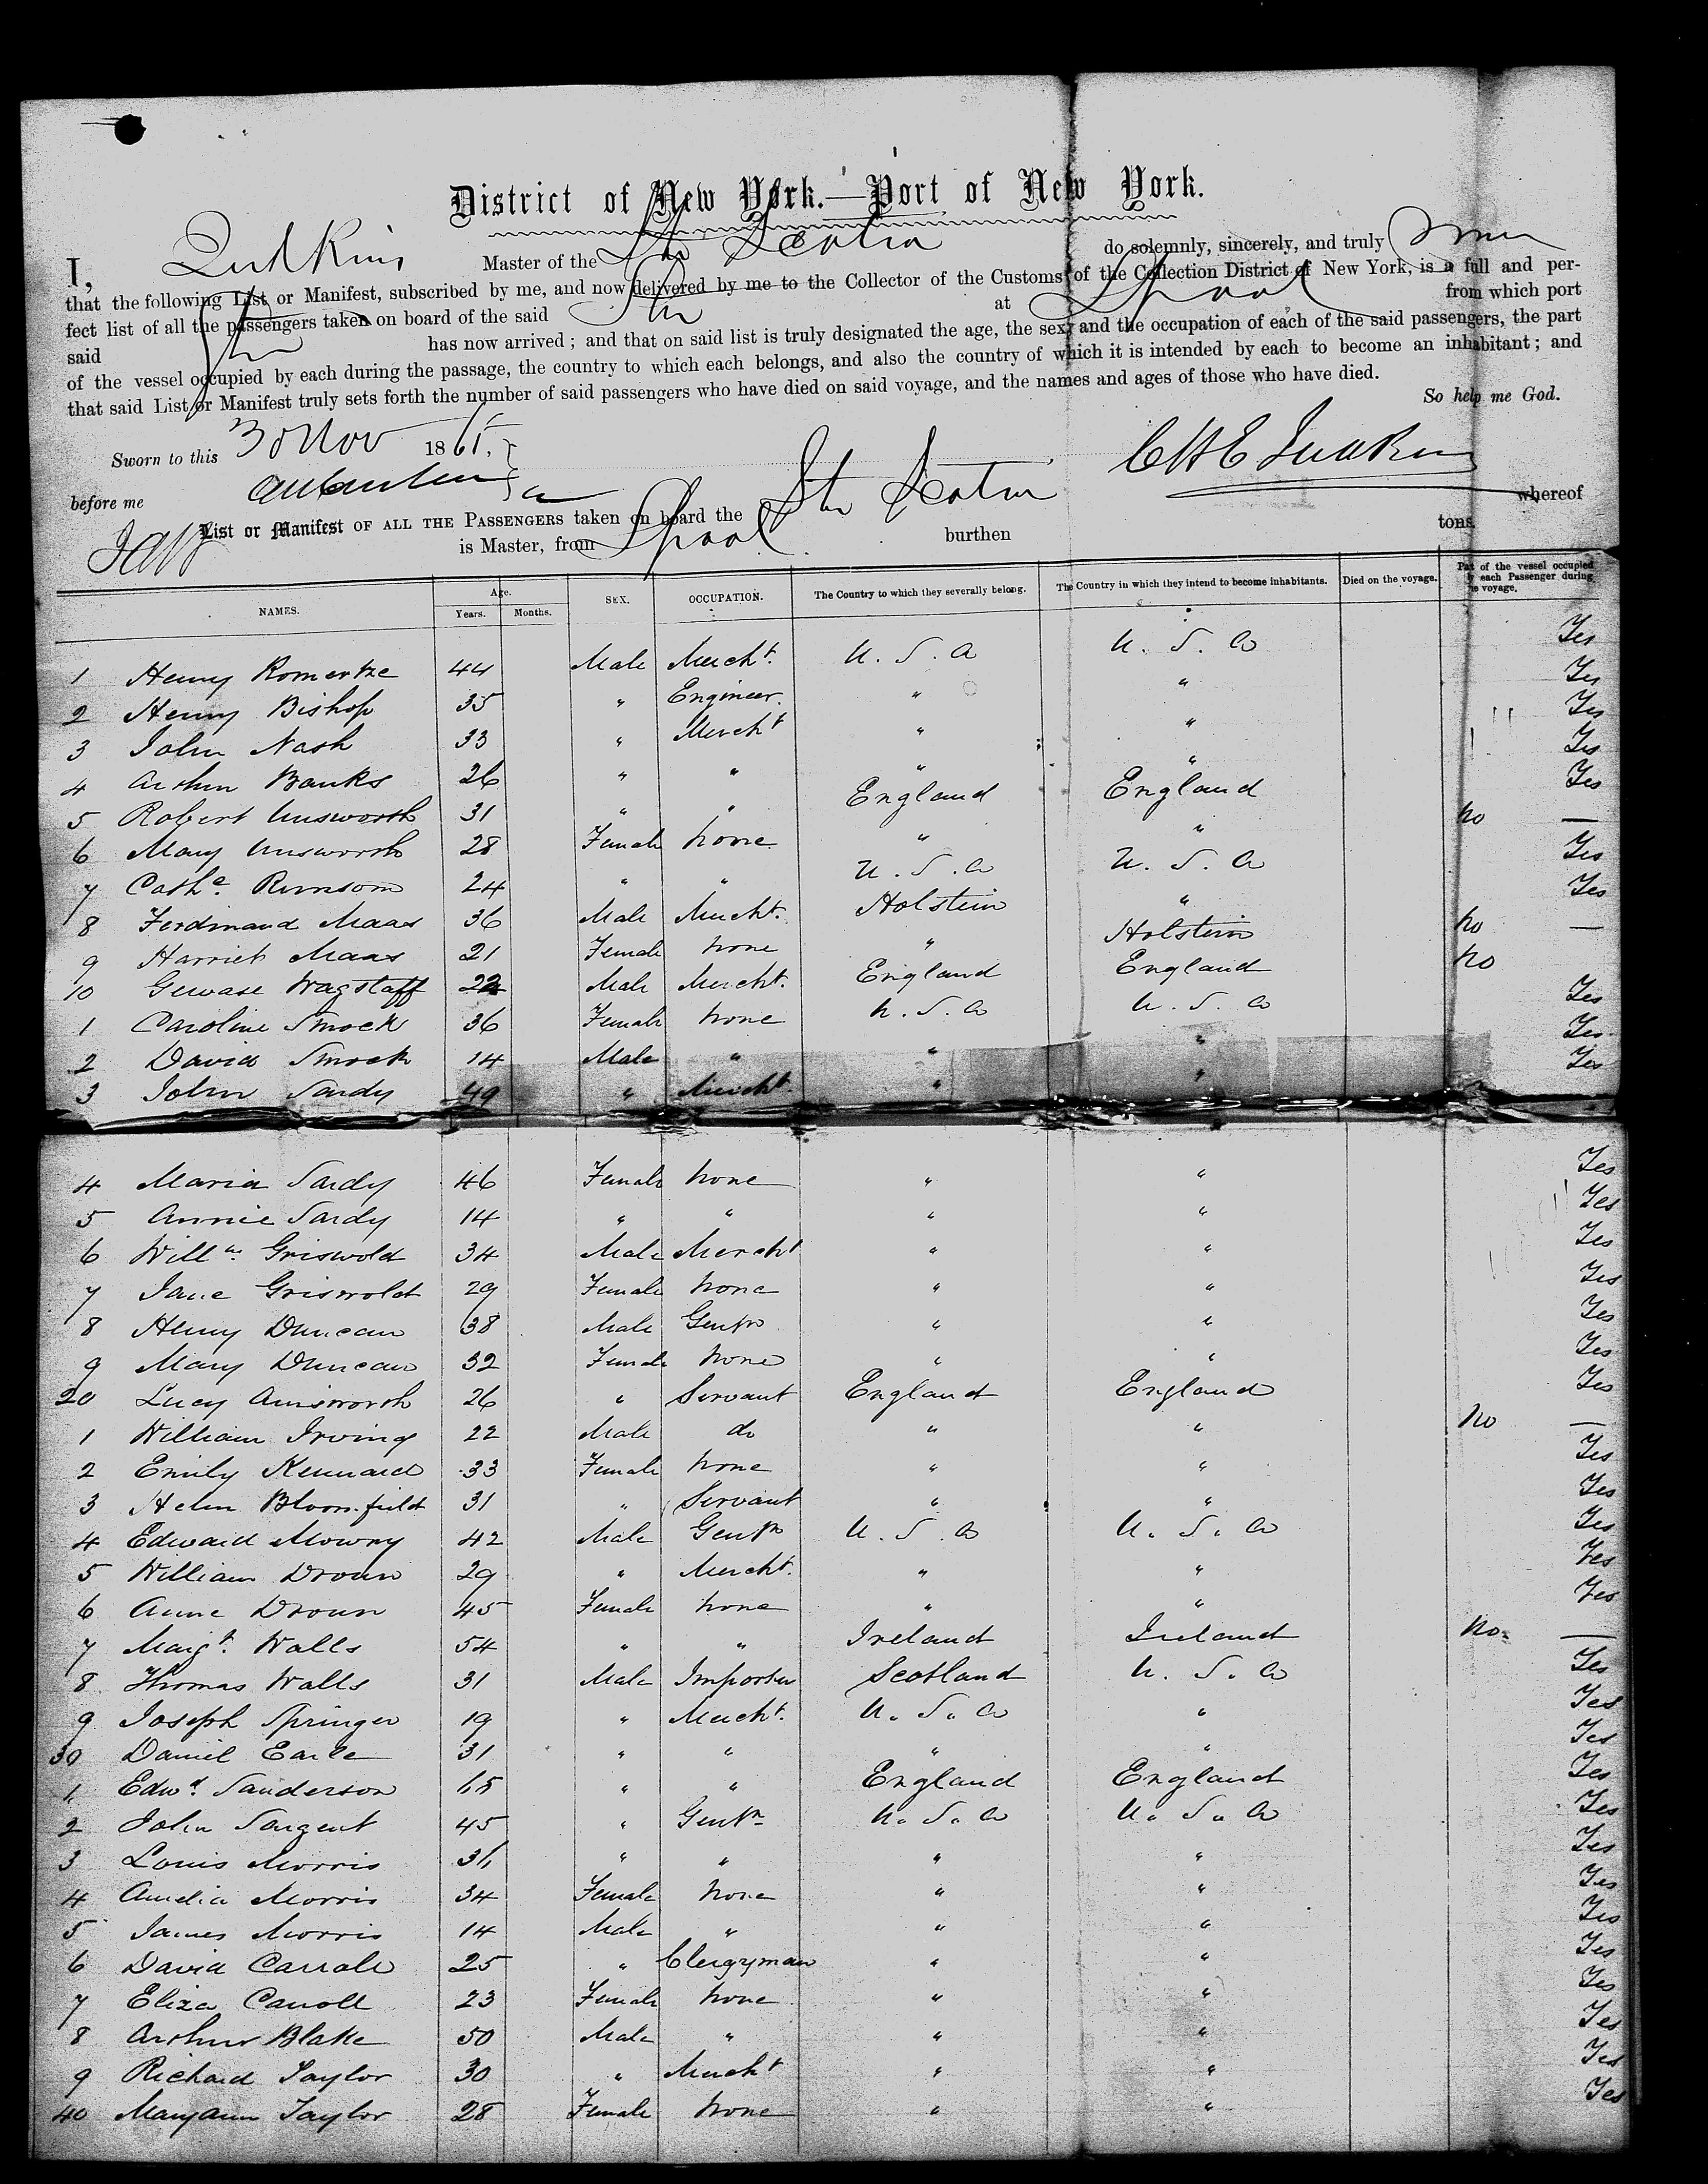 District of New York.—Port of New York.
I, Judkins Master of the Str Scotia do solemnly, sincerely, and truly swear
that the following List or Manifest, subscribed by me, and now delivered by me to the Collector of the Customs of the Collection District of New York, is a full and per-
fect list of all the passengers taken on board of the said Str at Lpool from which port
said Str has now arrived; and that on said list is truly designated the age, the sex, and the occupation of each of the said passengers, the part
of the vessel occupied by each during the passage, the country to which each belongs, and also the country of which it is intended by each to become an inhabitant; and
that said List or Manifest truly sets forth the number of said passengers who have died on said voyage, and the names and ages of those who have died.
So help me God.
Sworn to this 30 Nov 1865,
before me
CHE Judkins
List or Manifest OF ALL THE PASSENGERS taken on board the Str Scotia whereof
is Master, from Lpool burthen tons.
NAMES. Age. Years. Months. SEX. OCCUPATION. The Country to which they severally belong. The Country in which they intend to become inhabitants. Died on the voyage. Part of the vessel occupied by each Passenger during the voyage.
1 Henry Romertze 44 Male Mercht. U. S. A U. S. A Yes
2 Henry Bishop 35 " Engineer. " " Yes
3 John Nash 33 " Mercht " " Yes
4 Arthur Banks 26 " " " " Yes
5 Robert Unsworth 31 " " England England Yes
6 Mary Unsworth 28 Female None " " No —
7 Cathe. Rumsom 24 " " U. S. A U. S. A Yes
8 Ferdinand Maas 36 Male Mercht. Holstein " Yes
9 Harriet Maas 21 Female None " Holstein No —
10 Gervase Wagstaff 22 Male Mercht. England England No
1 Caroline Smock 36 Female None U. S. A U. S. A Yes
2 David Smock 14 Male " " " Yes
3 John Sardy 49 " Mercht. " " Yes
4 Maria Sardy 46 Female None " " Yes
5 Annie Sardy 14 " " " " Yes
6 Willm Griswold 34 Male Mercht " " Yes
7 Jane Griswold 29 Female None " " Yes
8 Henry Duncan 38 Male Gentn " " Yes
9 Mary Duncan 32 Female None " " Yes
20 Lucy Ainsworth 26 " Servant England England Yes
1 William Irving 22 Male do " " No —
2 Emily Kennard 33 Female None " " Yes
3 Helen Bloomfield 31 " Servant " " Yes
4 Edward Mowry 42 Male Gentn U. S. A U. S. A Yes
5 William Droun 29 " Mercht. " " Yes
6 Anne Droun 45 Female None " " Yes
7 Margt. Walls 54 " " Ireland Ireland No —
8 Thomas Walls 31 Male Importer Scotland U. S. A Yes
9 Joseph Springer 19 " Mercht. U. S. A " Yes
30 Daniel Earle 31 " " " " Yes
1 Edwd. Sanderson 65 " " England England Yes
2 John Sargent 45 " Gentn U. S. A U. S. A Yes
3 Louis Morris 36 " " " " Yes
4 Amelia Morris 34 Female None " " Yes
5 James Morris 14 Male " " " Yes
6 David Carroll 25 " Clergyman " " Yes
7 Eliza Carroll 23 Female None " " Yes
8 Arthur Blake 50 Male " " " Yes
9 Richard Taylor 30 " Mercht " " Yes
40 Maryann Taylor 28 Female None " " Yes